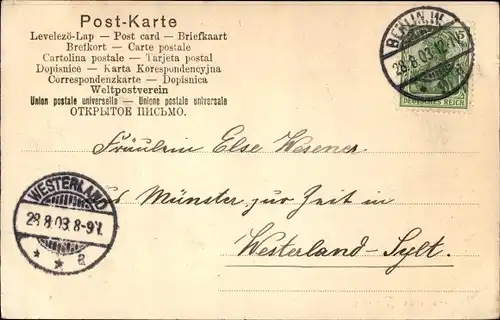 Post-Karte
Levelező-Lap — Post card — Briefkaart
Brefkort — Carte postale
Cartolina postale — Tarjeta postal
Dopisnice — Karta Korespondencyjna
Correspondenzkarte — Dopisnica
Weltpostverein
Union postale universelle — Unione postale universale
ОТКРЫТОЕ ПИСЬМО.
BERLIN.W.
28.8.03.12-1N.
5
DEUTSCHES REICH
Fräulein Else Wesener
aus Münster zur Zeit in
Westerland-Sylt.
WESTERLAND
28.8.03.8-9V.
* * a